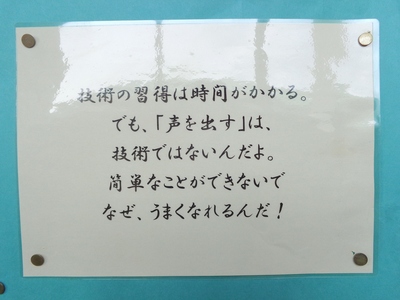 技術の習得は時間がかかる。
でも、「声を出す」は、
技術ではないんだよ。
簡単なことができないで
なぜ、うまくなれるんだ！